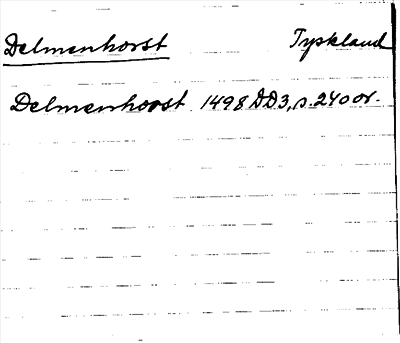 Delmenhorst Tyskland
Delmenhorst 1498 DD3, s. 240 or.